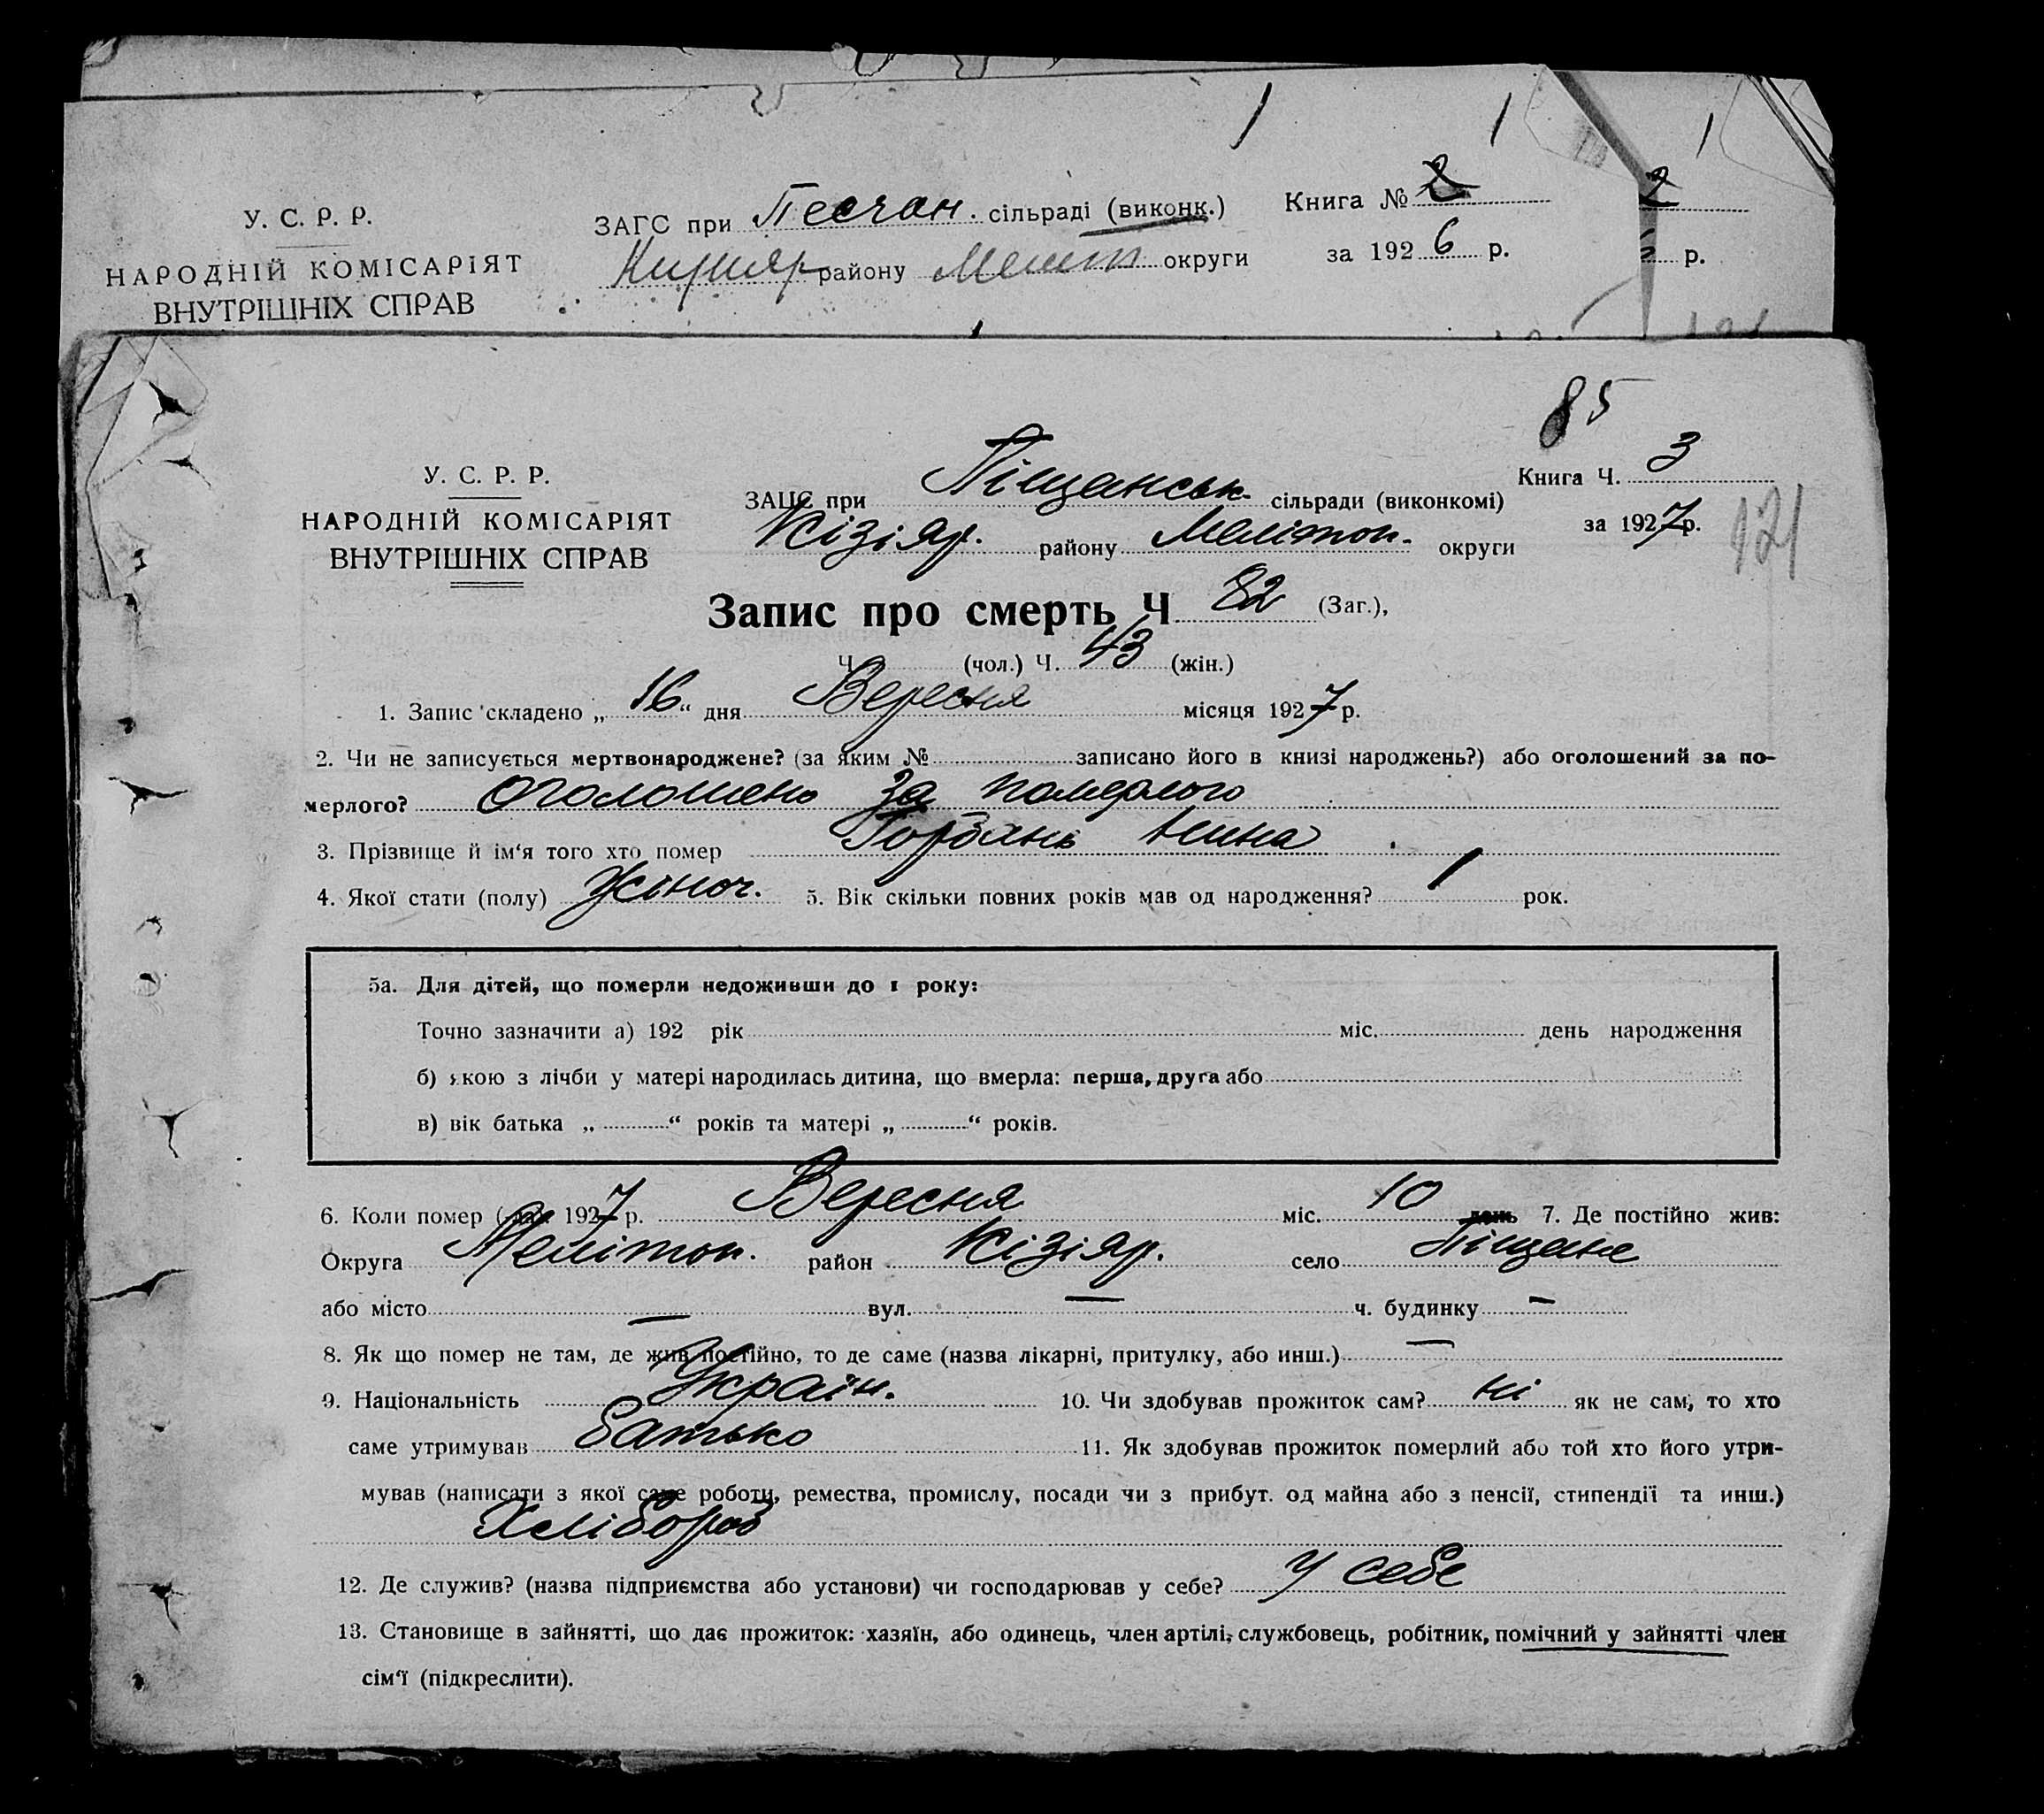 У. С. Р. Р.
НАРОДНІЙ КОМІСАРІЯТ
ВНУТРІШНІХ СПРАВ
ЗАГС при Песчан. сільраді (виконк.)
району Меліт округи
Книга № 2
за 1926 р.
2
р.
85
У. С. Р. Р.
НАРОДНІЙ КОМІСАРІЯТ
ВНУТРІШНІХ СПРАВ
ЗАЦС при Піщанськ. сільради (виконкомі)
Кізіяр. району Мелітоп. округи
Книга Ч. 3
за 1927 р.
121
Запис про смерть Ч 82 (Заг.),
Ч. (чол.) Ч. 43 (жін.)
1. Запис складено „ 16 “ дня Вересня місяця 1927 р.
2. Чи не записується мертвонароджене? (за яким № записано його в книзі народжень?) або оголошений за по-
мерлого? оголошено за померлого
3. Прізвище й ім‘я того хто помер Горбань
4. Якої стати (полу) Жіноч. 5. Вік скільки повних років мав од народження? 1 рок.
5а. Для дітей, що померли недоживши до 1 року:
Точно зазначити а) 192 рік міс. день народження
б) якою з лічби у матері народилась дитина, що вмерла: перша, друга або
в) вік батька „ “ років та матері „ “ років.
6. Коли помер 1927 р. Вересня міс. 10 день 7. Де постійно жив:
Округа Мелітоп. район Кізіяр. село Піщане
або місто — вул. — ч. будинку —
8. Як що помер не там, де жив постійно, то де саме (назва лікарні, притулку, або инш.) —
9. Національність Україн. 10. Чи здобував прожиток сам? ні як не сам, то хто
саме утримував батько 11. Як здобував прожиток померлий або той хто його утри-
мував (написати з якої саме роботи, ремества, промислу, посади чи з прибут. од майна або з пенсії, стипендії та инш.)
Хлібороб
12. Де служив? (назва підприємства або установи) чи господарював у себе? у себе
13. Становище в зайнятті, що дає прожиток: хазяїн, або одинець, член артілі, службовець, робітник, помічний у зайнятті член
сім‘ї (підкреслити).